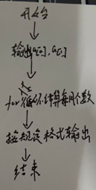 开始
输出a[], a[c]
for循环计算每个数
按规定格式输出
结束